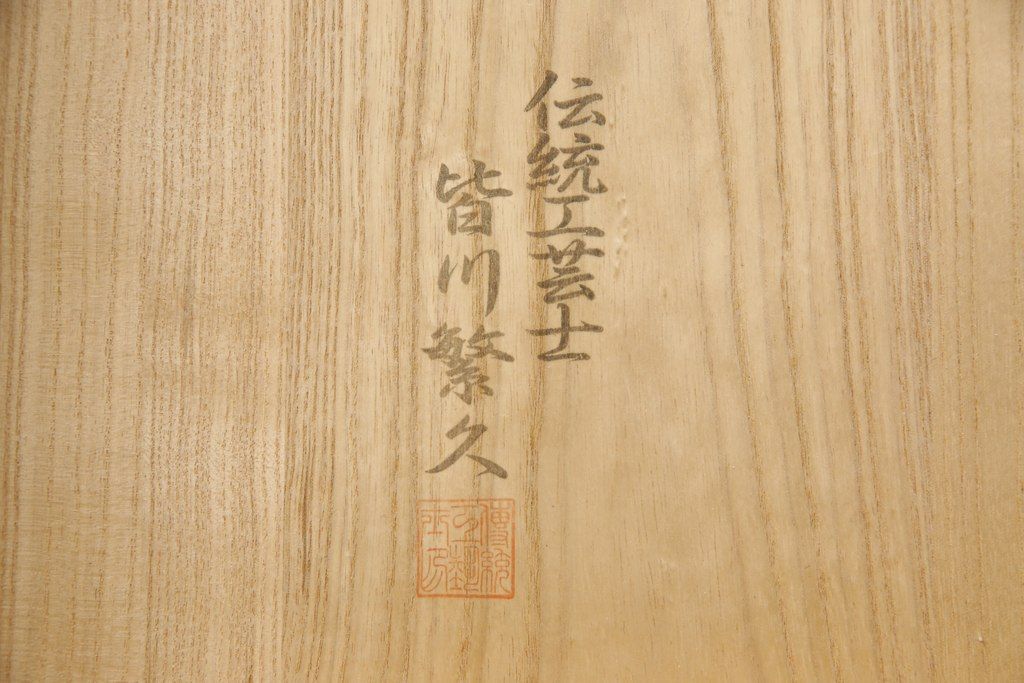 伝統工芸士
皆川繁久